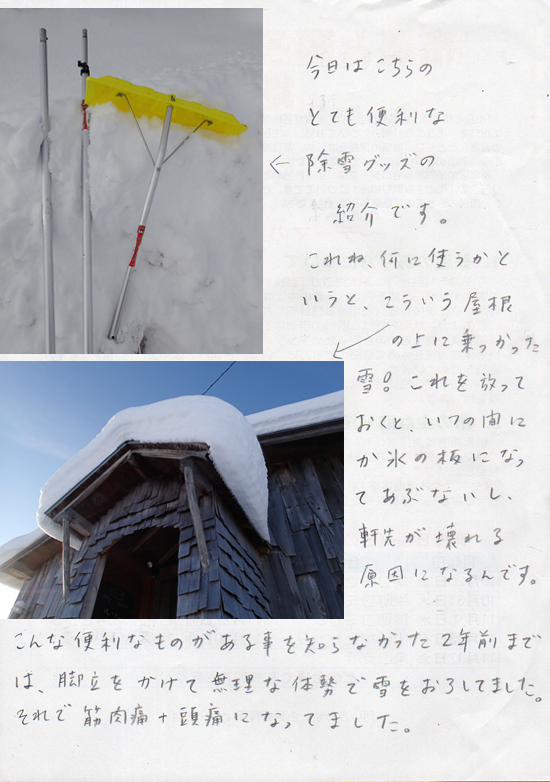 今日は こちらの
とても 便利な
← 除雪グッズの
紹介です。
これね、何に使うかと
いうと、こういう屋根
の上に乗っかった
雪! これを放って
おくと、いつの間に
か氷の板になっ
てあぶないし、
軒先が壊れる
原因になるんです。
こんな便利なものがある事を知らなかった2年前まで
は、脚立をかけて無理な体勢で雪をおろしてました。
それで筋肉痛+頭痛になってました。